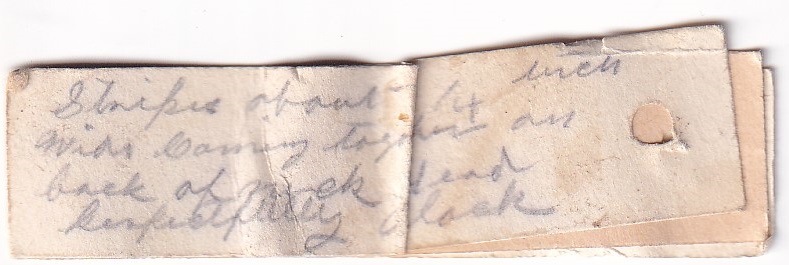 Stripes about 1/4 inch
wide Coming together on
back of neck Head
black